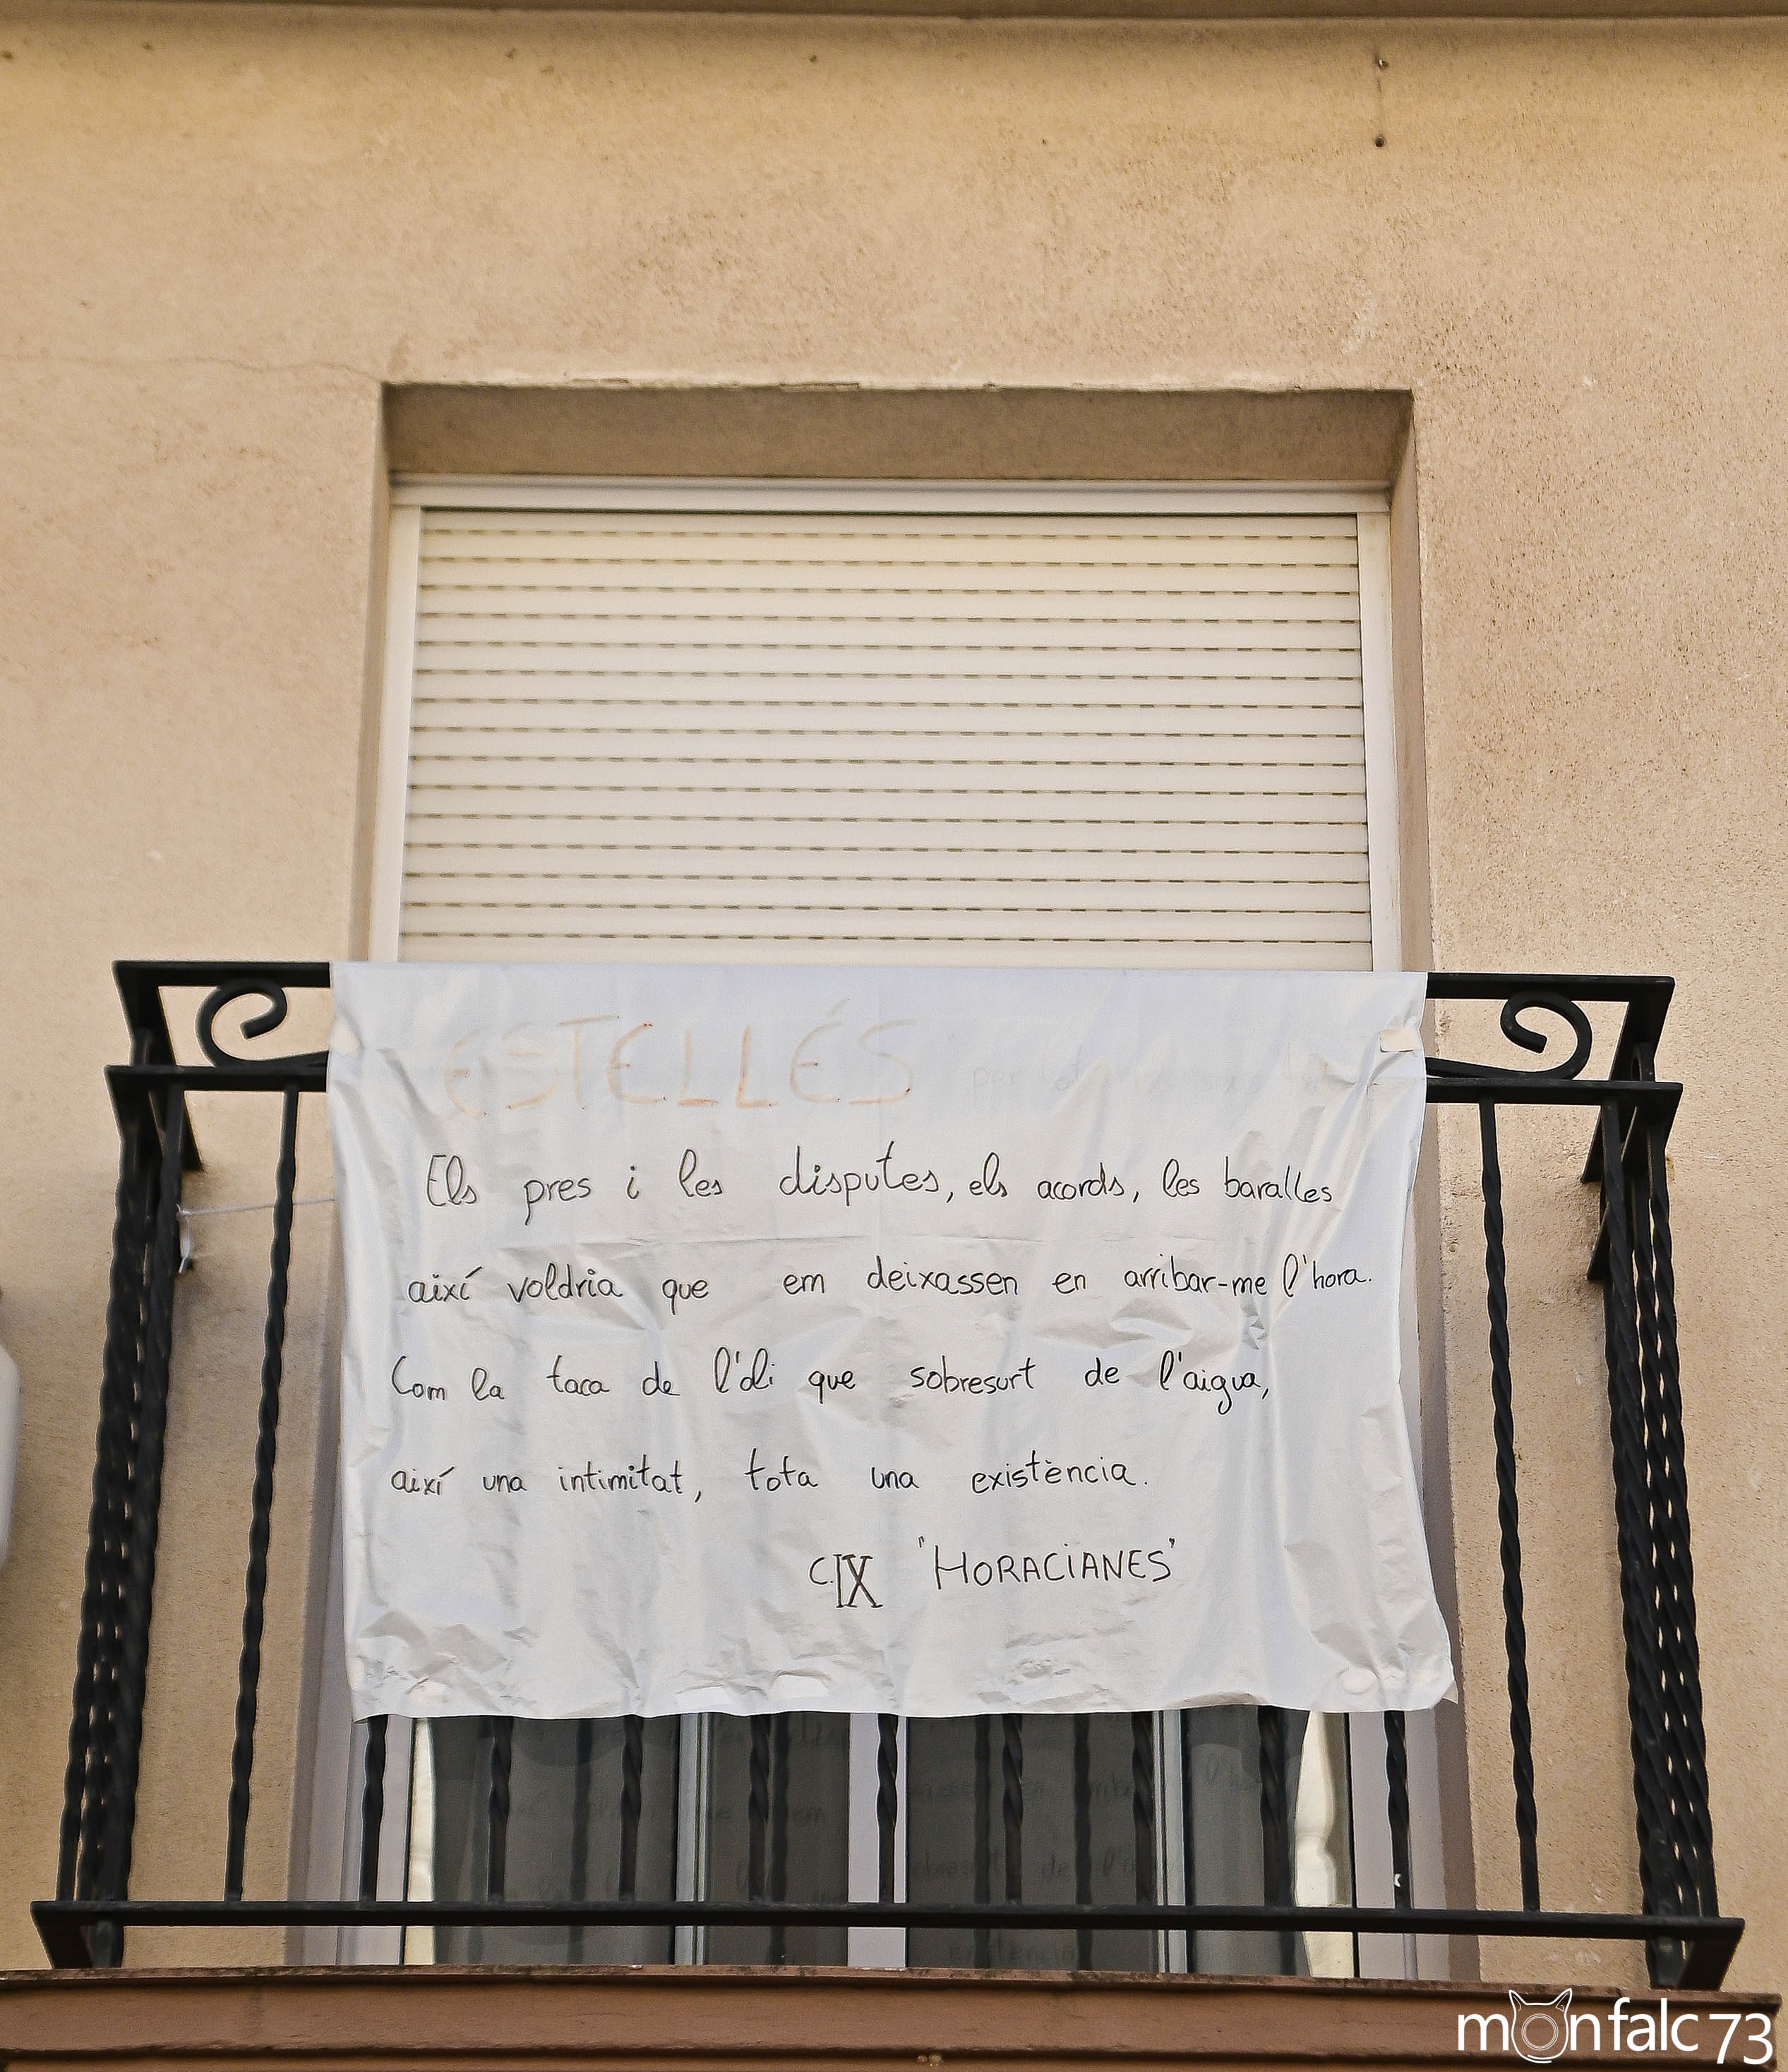 ESTELLÉS
Els pres i les disputes, els acords, les baralles
així voldria que em deixassen en arribar-me l'hora.
Com la taca de l'oli que sobresurt de l'aigua,
així una intimitat, tota una existència.
CIX "HORACIANES"
monfalc 73